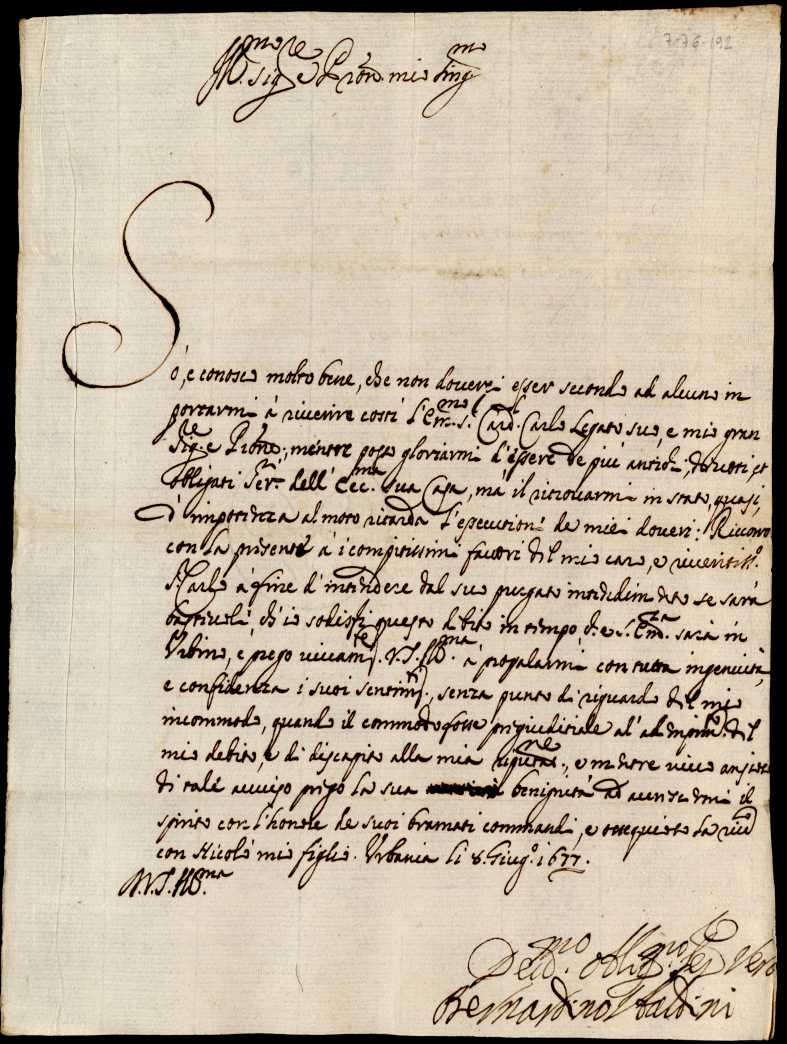 7-76-192
Ill.mo Sig.re e Pron. mio Sing.mo
So, e conosco molto bene, che non doverei esser secondo ad alcuno in
portarmi à riverire costì l'Em.mo S. Card. Carlo Legato suo, e mio gran
Sig.re e Prone., mentre posso gloriarmi d'essere de più antichi, devoti et
obligati Ser.ri dell' Ecc.ma sua Casa, mà il ritrovarmi in stato, quasi,
d'impotenza al moto ritarda l'esecutioni de miei doveri; Ricorro
con la presente à i compitissimi favori del mio caro, e riveritiss.o
S.r Carlo à fine d'intendere dal suo purgato intendimento se sarà
bastevole, ch'io sodisfi questo debito in tempo, che S. Em.za sarà in
Urbino, e prego vivam.te V.S. Ill.ma à propalarmi con tutta ingenuità,
e confidenza i suoi sentim.ti, senza punto di riguardo del mio
incommodo, quando il commodo fosse pregiuditiale al' adempim.to del
mio debito, e di discapito alla mia riputat.ne, e mentre vivo ansioso
di tale avviso prego la sua benignità ad avvivarmi il
spirito con l'honore de suoi bramati commandi, e ossequioso la riv.
con Nicolò mio figlio. Urbania li 8. Giug.o 1677.
D.V.S. Ill.ma
Dev.mo Oblig.mo Ser. Vero
Bernardino Ubaldini